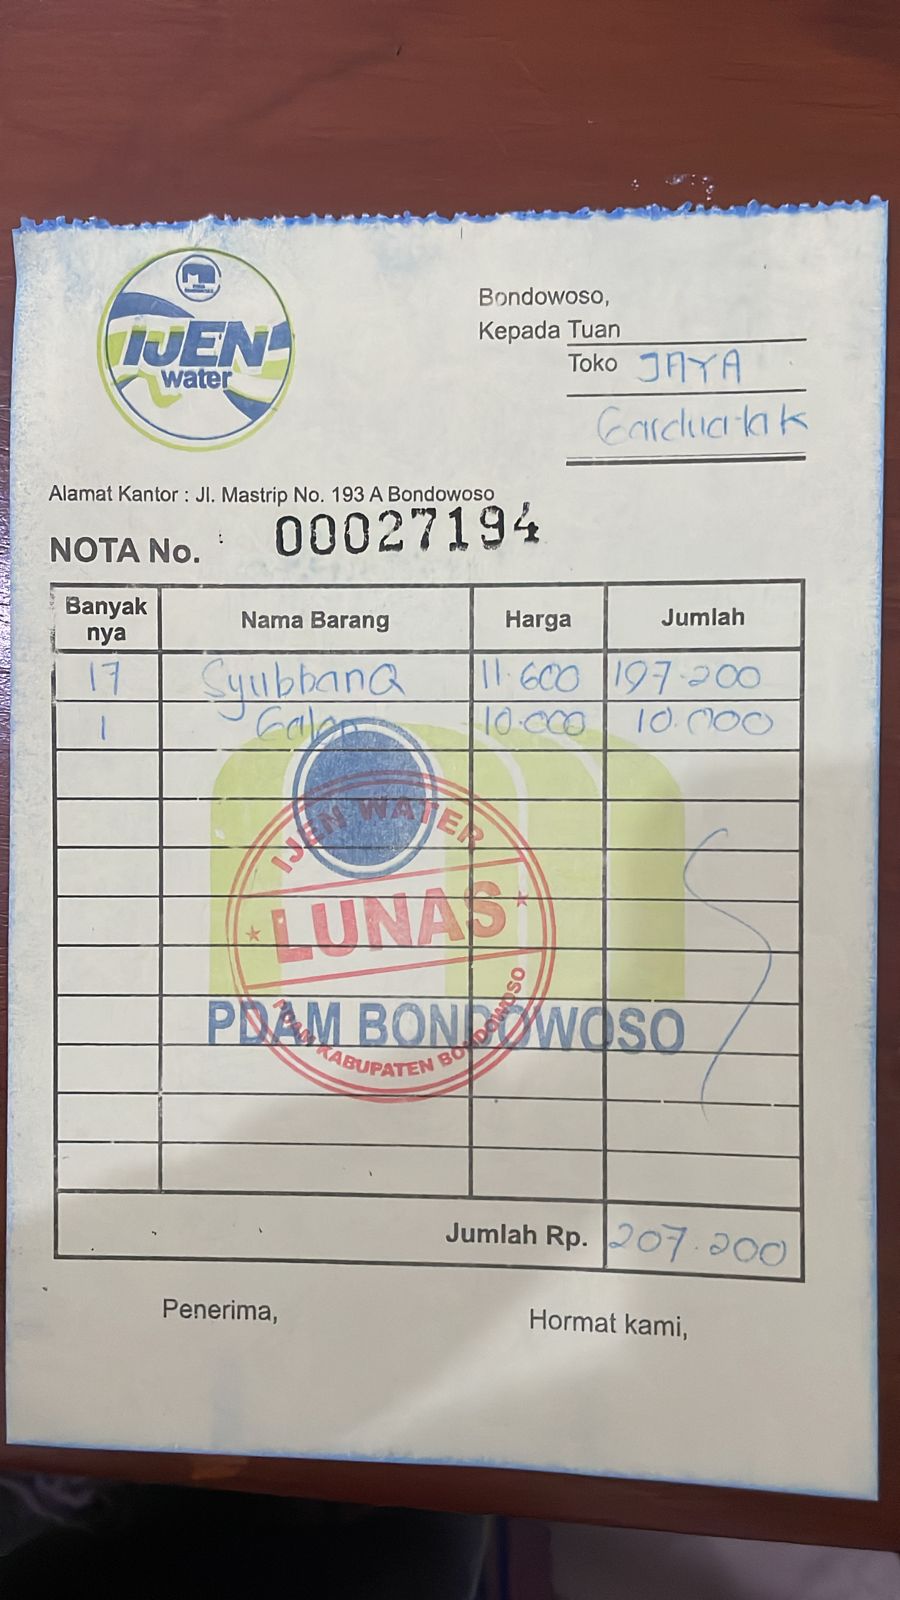 IJEN
water
Bondowoso,
Kepada Tuan
Toko JAYA
Garduatak
Alamat Kantor : Jl. Mastrip No. 193 A Bondowoso
NOTA No. : 00027194
Banyak nya Nama Barang Harga Jumlah
17 Syubbana 11.600 197.200
1 Galon 10.000 10.000
IJEN WATER
LUNAS
PDAM BONDOWOSO
PDAM KABUPATEN BONDOWOSO
Jumlah Rp. 207.200
Penerima, Hormat kami,